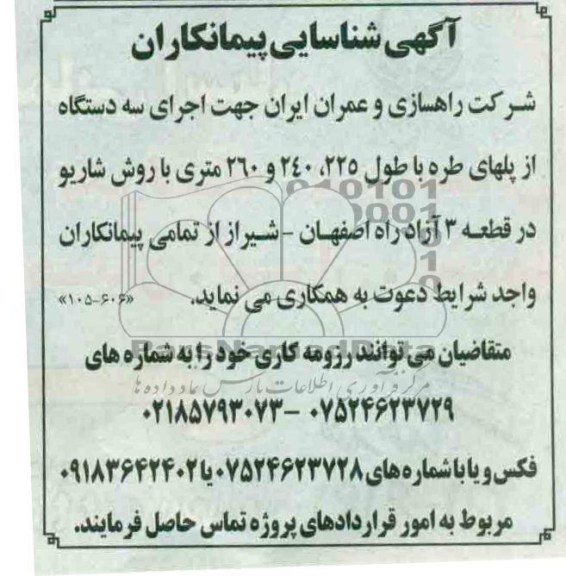 آگهی شناسایی پیمانکاران
شرکت راهسازی و عمران ایران جهت اجرای سه دستگاه
از پلهای طره با طول ۲۲۵، ۲۴۰ و ۲۶۰ متری با روش شاریو
در قطعه ۳ آزاد راه اصفهان - شیراز از تمامی پیمانکاران
واجد شرایط دعوت به همکاری می نماید. «۱۰۵-۶۰۶»
ParsNamadData
متقاضیان می توانند رزومه کاری خود را به شماره های
مرکز فرآوری اطلاعات پارس نماد داده ها
۰۷۵۲۴۶۲۳۷۲۹ - ۰۲۱۸۵۷۹۳۰۷۳
فکس و یا با شماره های ۰۷۵۲۴۶۲۳۷۲۸ یا ۰۹۱۸۳۶۴۲۴۰۲
مربوط به امور قراردادهای پروژه تماس حاصل فرمایند.